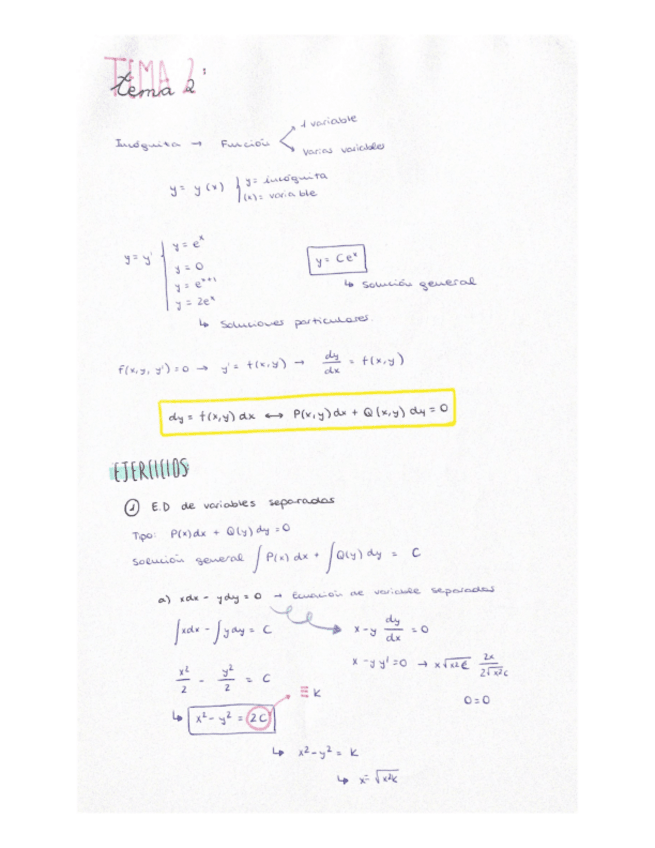 TEMA 2
tema 2
Incógnita → Función
1 variable
Varias variables
y = y(x) { y = incógnita
(x) = variable
y = y' { y = e^x
y = 0
y = e^{x+1}
y = 2e^x
y = Ce^x
↳ Solución general
↳ Soluciones particulares.
f(x,y,y') = 0 → y' = f(x,y) → dy/dx = f(x,y)
dy = f(x,y) dx ↔ P(x,y) dx + Q(x,y) dy = 0
EJERCICIOS
① E.D de variables separadas
Tipo: P(x)dx + Q(y)dy = 0
Solución general ∫P(x) dx + ∫Q(y) dy = C
a) xdx - ydy = 0 → Ecuación de variable separadas
∫xdx - ∫ydy = C
x - y dy/dx = 0
x - yy' = 0 → x√x²c 2x/2√x²c
x²/2 - y²/2 = C
0 = 0
↳ x² - y² = 2C
≡ K
↳ x² - y² = K
↳ x = √x²k